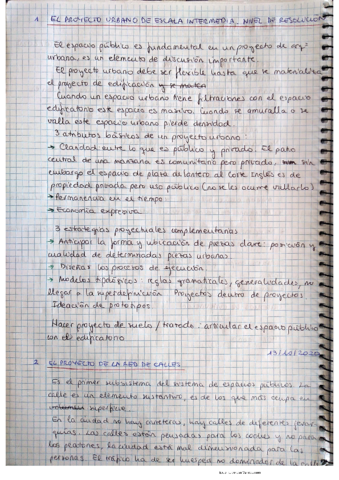 1. EL PROYECTO URBANO DE ESCALA INTERMEDIA. NIVEL DE RESOLUCIÓN
El espacio público es fundamental en un proyecto de
urbana, es un elemento de discusión importante.
El proyecto urbano debe ser flexible hasta que se materializa
el proyecto de edificación
Cuando un espacio urbano tiene filtraciones con el espacio
edificatorio este espacio es masivo, cuando se amuralla o se
valla este espacio urbano pierde densidad.
3 atributos básicos de un proyecto urbano:
→ Claridad entre lo que es público y privado. El patio
central de una manzana es comunitario pero privado, sin
embargo el espacio de plaza delantero al Corte Inglés es de
propiedad privada pero uso público (no se les ocurre vallarlo)
→ Permanencia en el tiempo
→ Economía expresiva
3 estrategias proyectuales complementarias
→ Anticipar la forma y ubicación de piezas clave: posición y
cualidad de determinadas piezas urbanas.
→ Diseñar los procesos de ejecución
→ Modelos tipológicos: reglas gramaticales, generalidades, no
llegar a la superdefinición. Proyectos dentro de proyectos
Ideación de prototipos.
Hacer proyecto de suelo / trazado: articular el espacio público
con el edificatorio
13/10/2020
2. EL PROYECTO DE LA RED DE CALLES
Es el primer subsistema del sistema de espacios públicos. La
calle es un elemento sustantivo, es de los que más ocupa en
superficie.
En la ciudad no hay carreteras, hay calles de diferentes jerar-
quías. Las calles están pensadas para los coches y no para
los peatones, la ciudad está mal dimensionada para las
personas. El tráfico ha de ser huésped no dominador de la calle